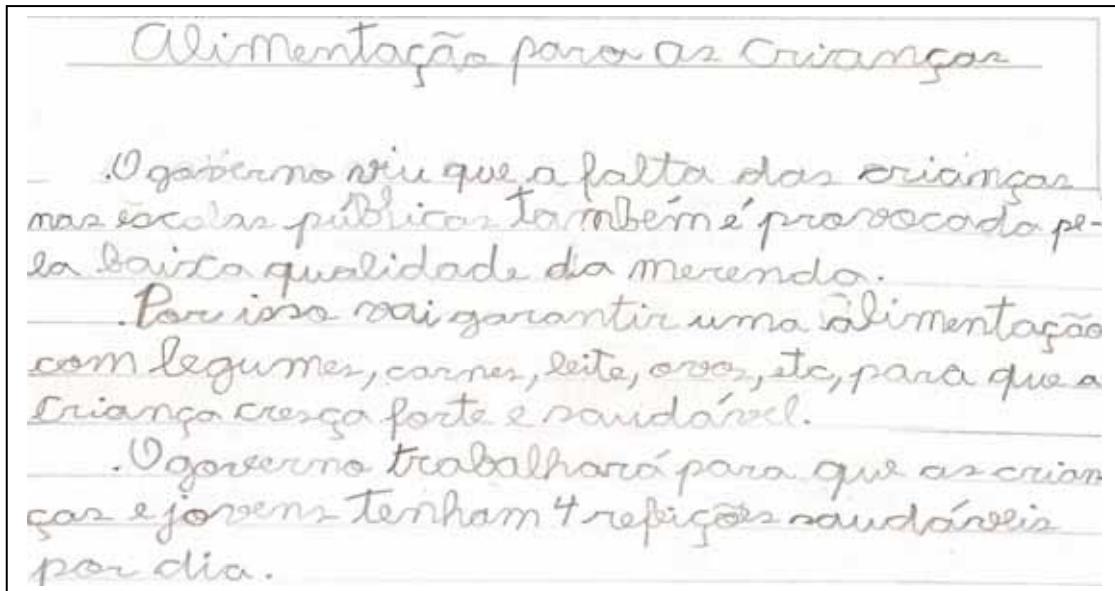 Alimentação para as Crianças
.O governo viu que a falta das crianças
nas escolas públicas também é provocada pe-
la baixa qualidade da merenda.
.Por isso vai garantir uma alimentação
com legumes, carnes, leite, ovos, etc, para que a
criança cresça forte e saudável.
.O governo trabalhará para que as crian
ças e jovens tenham 4 refeições saudáveis
por dia.